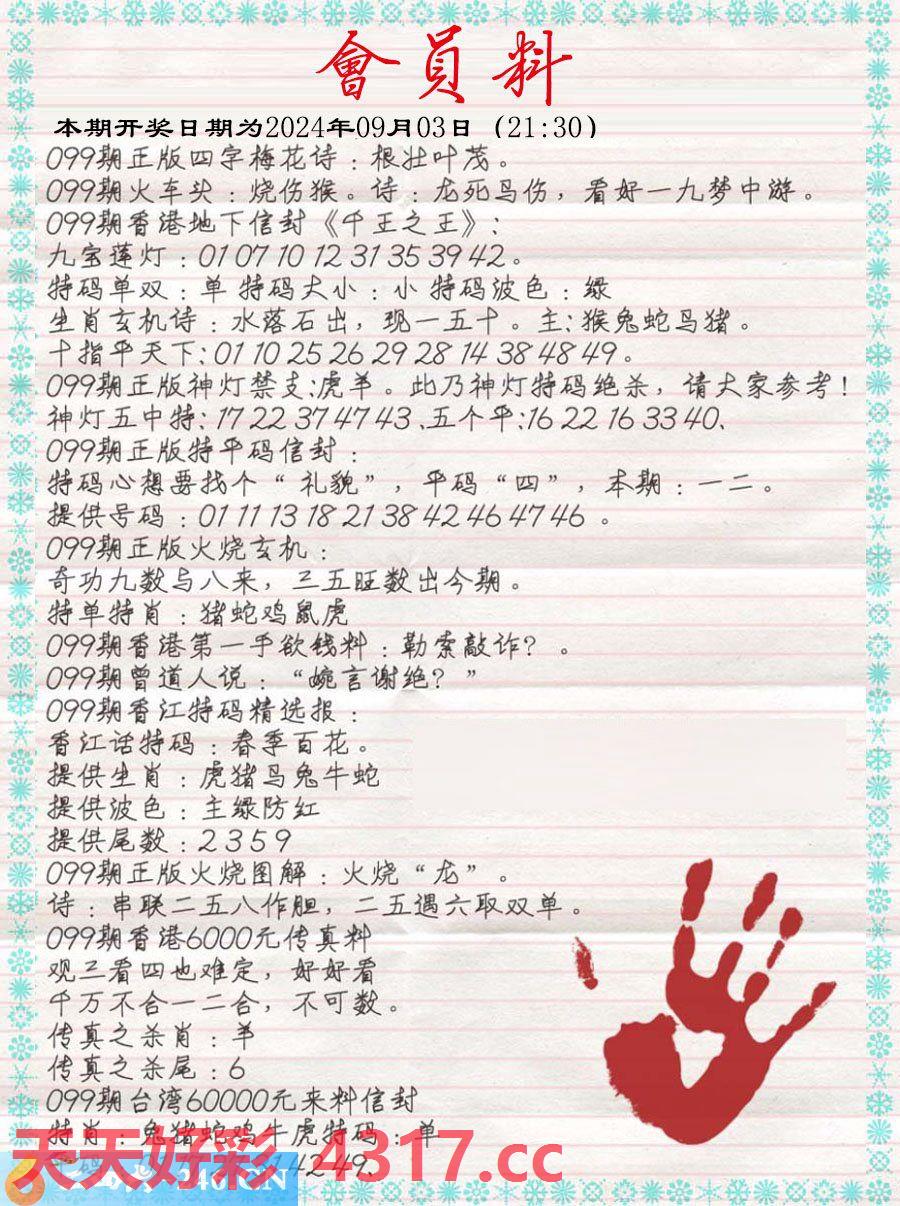 會員料
本期开奖日期为2024年09月03日（21:30）
099期正版四字梅花诗：根壮叶茂。
099期火车头：烧伤猴。诗：龙死鸟伤，看好一九梦中游。
099期香港地下信封《千王之王》：
九宝莲灯：01 07 10 12 31 35 39 42。
特码单双：单 特码大小：小 特码波色：绿
生肖玄机诗：水落石出，现一五十。主：猴兔蛇鸟猪。
十指平天下：01 10 25 26 29 28 14 38 48 49。
099期正版神灯禁支:虎羊。此乃神灯特码绝杀，请大家参考！
神灯五中特：17 22 37 47 43、五个平:16 22 16 33 40、
099期正版特平码信封：
特码心想要找个“礼貌”，平码“四”，本期：一二。
提供号码：01 11 13 18 21 38 42 46 47 46 。
099期正版火烧玄机：
奇功九数与八来，三五旺数出今期。
特单特肖：猪蛇鸡鼠虎
099期香港第一手欲钱料：勒索敲诈？。
099期曾道人说：“婉言谢绝？”
099期香江特码精选报：
香江话特码：春季百花。
提供生肖：虎猪鸟兔牛蛇
提供波色：主绿防红
提供尾数：2 3 5 9
099期正版火烧图解：火烧“龙”。
诗：串联二五八作胆，二五遇六取双单。
099期香港6000元传真料
观三看四也难定，好好看
千万不合一二合，不可数。
传真之杀肖：羊
传真之杀尾：6
099期台湾60000元来料信封
特肖：兔猪蛇鸡牛虎特码：单
42 49、
天天好彩 4317.cc
246.CN